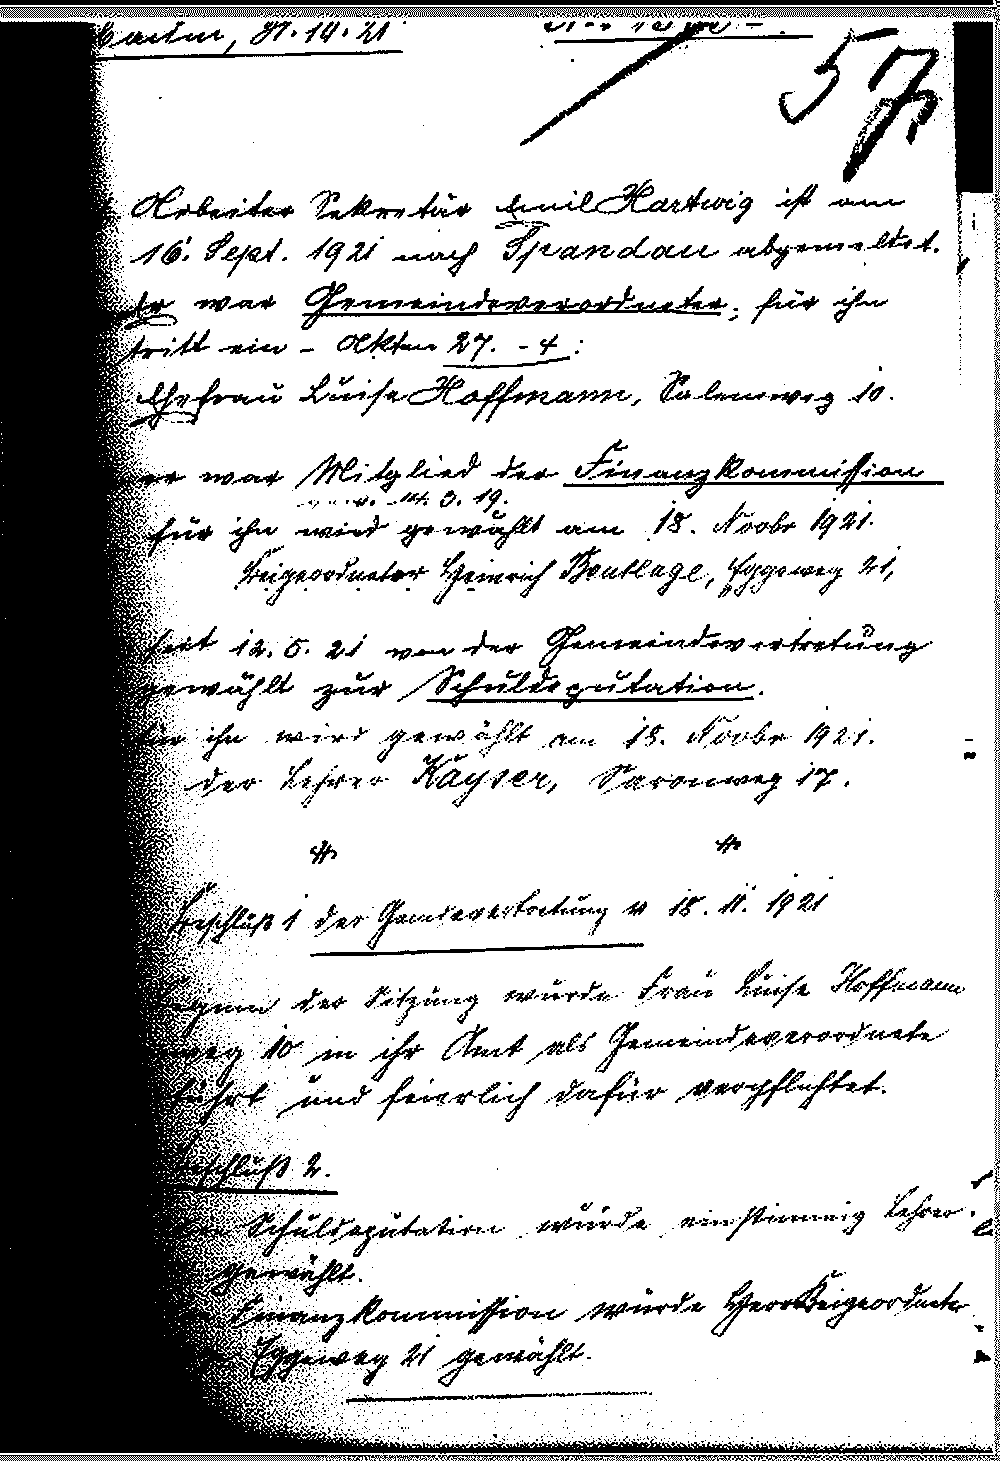 57
Arbeiter Sekretär Emil Hartwig ist am
16. Sept. 1921 nach Spandau abgemeldet.
Er war Gemeindeverordneter, für ihn
tritt ein - Akten 27. - 4:
Ehefrau Luise Hoffmann, Salemweg 10.
er war Mitglied der Finanzkommission
3. 19.
für ihn wird gewählt am 18. Novbr 1921.
Beigeordneter Heinrich Bentlage, Eggeweg 21,
seit 12. 5. 21 von der Gemeindevertretung
gewählt zur Schuldeputation.
für ihn wird gewählt am 18. Novbr 1921.
der Lehrer Kayser, Saronweg 17.
Beschluß 1 der Gemdevertretung v 18. 11. 1921
der Sitzung wurde Frau Luise Hoffmann
weg 10 in ihr Amt als Gemeindeverordnete
führt und feierlich dafür verpflichtet.
Beschluß 2.
Schuldeputation wurde einstimmig Lehrer
gewählt.
Finanzkommission wurde Herr Beigeordneter
Eggeweg 21 gewählt.